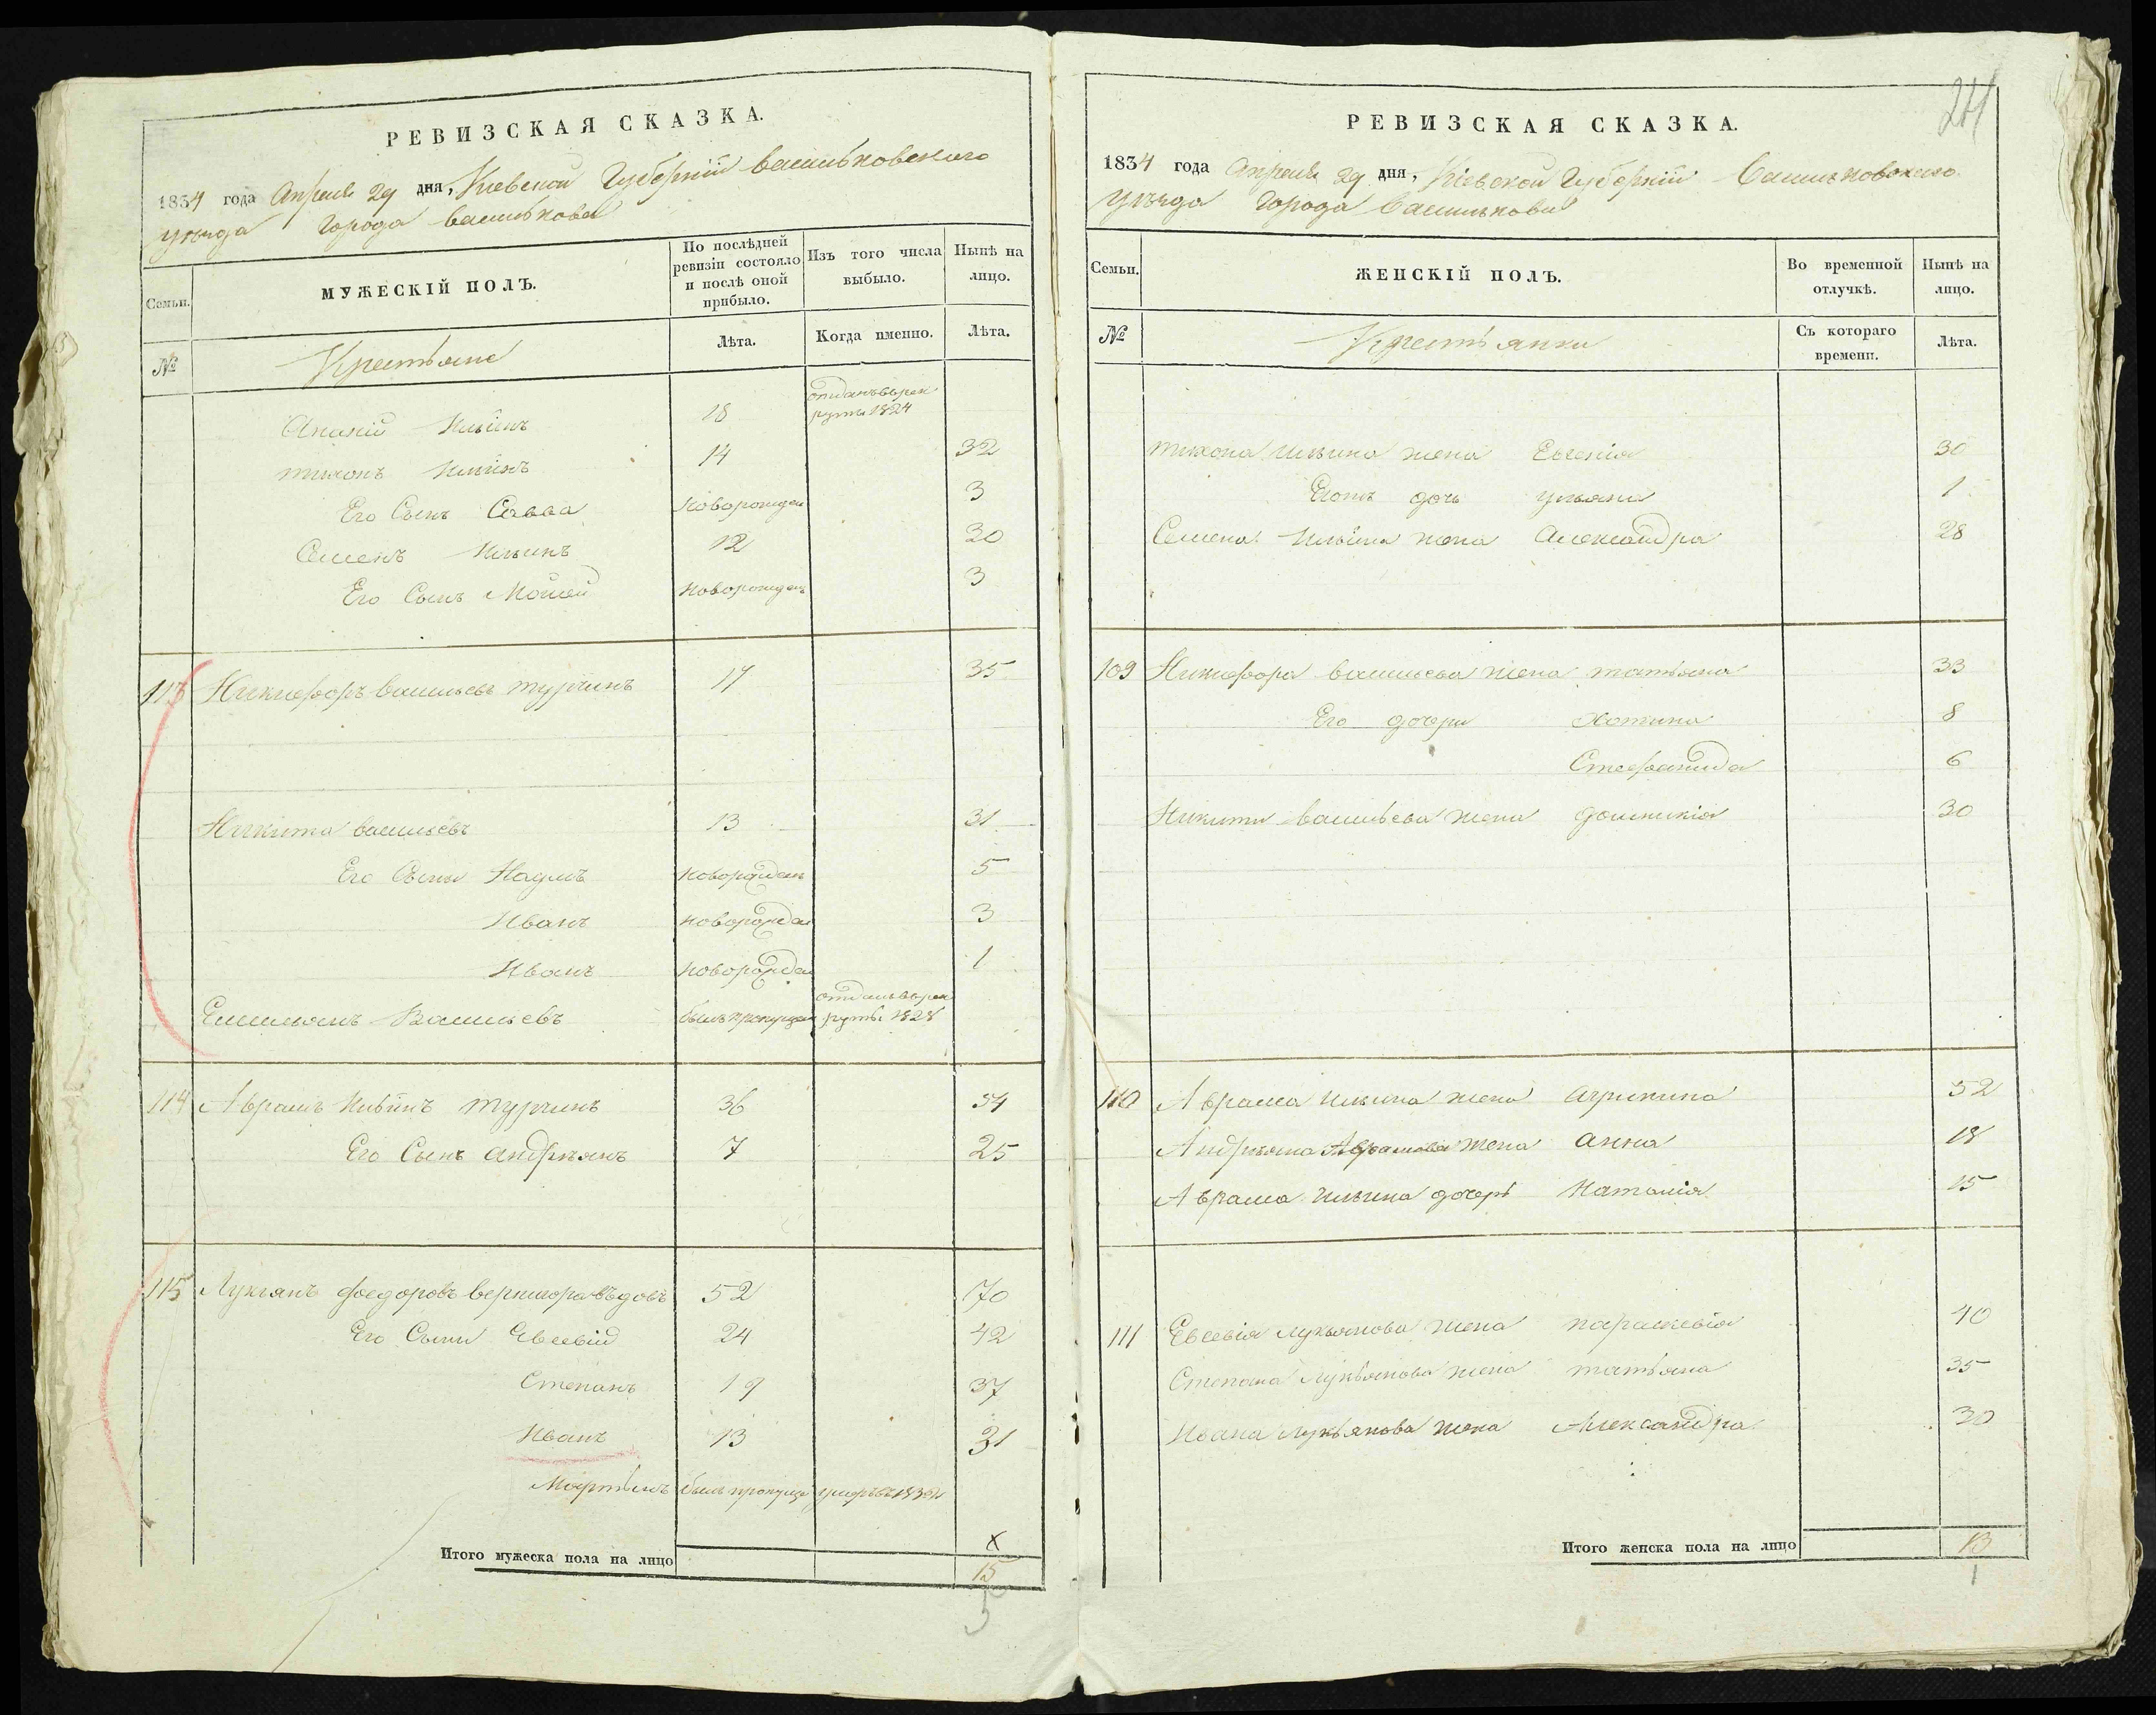 РЕВИЗСКАЯ СКАЗКА.
1834 года Апреля 29 дня, Киевской Губернiи Васильковского
уезда города Василькова
Семьи.
МУЖЕСКIЙ ПОЛЪ.
По послѣдней ревизiи состояло и послѣ оной прибыло.
Изъ того числа выбыло.
Нынѣ на лицо.
№
Крестьяне
Лѣта.
Когда именно.
Лѣта.
Ананiй Ильинъ 18 отданъ въ рек
руты 1824
тихонъ Ильинъ 14 32
Его Сынъ Савва новорожден 3
Семенъ Ильинъ 12 30
Его Сынъ Мойсей новорожден 3
113 Никифоръ васильевъ турчинъ 17 35
Никита васильевъ 13 31
Его Сыны Наумъ новорожден 5
Иванъ новорожден 3
Иванъ новорожден 1
Емельянъ Васильевъ былъ пропущен отданъ въ рек
руты 1828
114 Аврамъ Ильинъ турчинъ 36 54
Его Сынъ андрѣянъ 7 25
115 Лукянъ федоровъ 52 70
Его Сыны Евсевiй 24 42
Степанъ 19 37
Иванъ 13 31
Мартынъ былъ пропуще умеръ въ
Итого мужеска пола на лицо
х
15
5
РЕВИЗСКАЯ СКАЗКА.
1834 года Апреля 29 дня, Кiевской Губернiи Васильковского
уезда города Василькова
Семьи.
ЖЕНСКIЙ ПОЛЪ.
Во временной отлучкѣ.
Нынѣ на лицо.
№
Крестьянки
Съ котораго времени.
Лѣта.
тихона ильина жена Евгенiя 30
Егожъ дочь ульяна 1
Семена Ильина жена Александра 28
109 Никифора васильева жена татьяна 33
Его дочери 8
Стефанида 6
Никиты васильева жена домникiя 30
110 Аврама ильина жена агрипина 52
Андрѣяна Аврамова жена анна 18
Аврама ильина дочерь Наталiя 15
111 Евсевiя лукьянова жена параскевiя 40
Степана лукьянова жена татьяна 35
Ивана лукьянова жена Александра 30
Итого женска пола на лицо 13
1